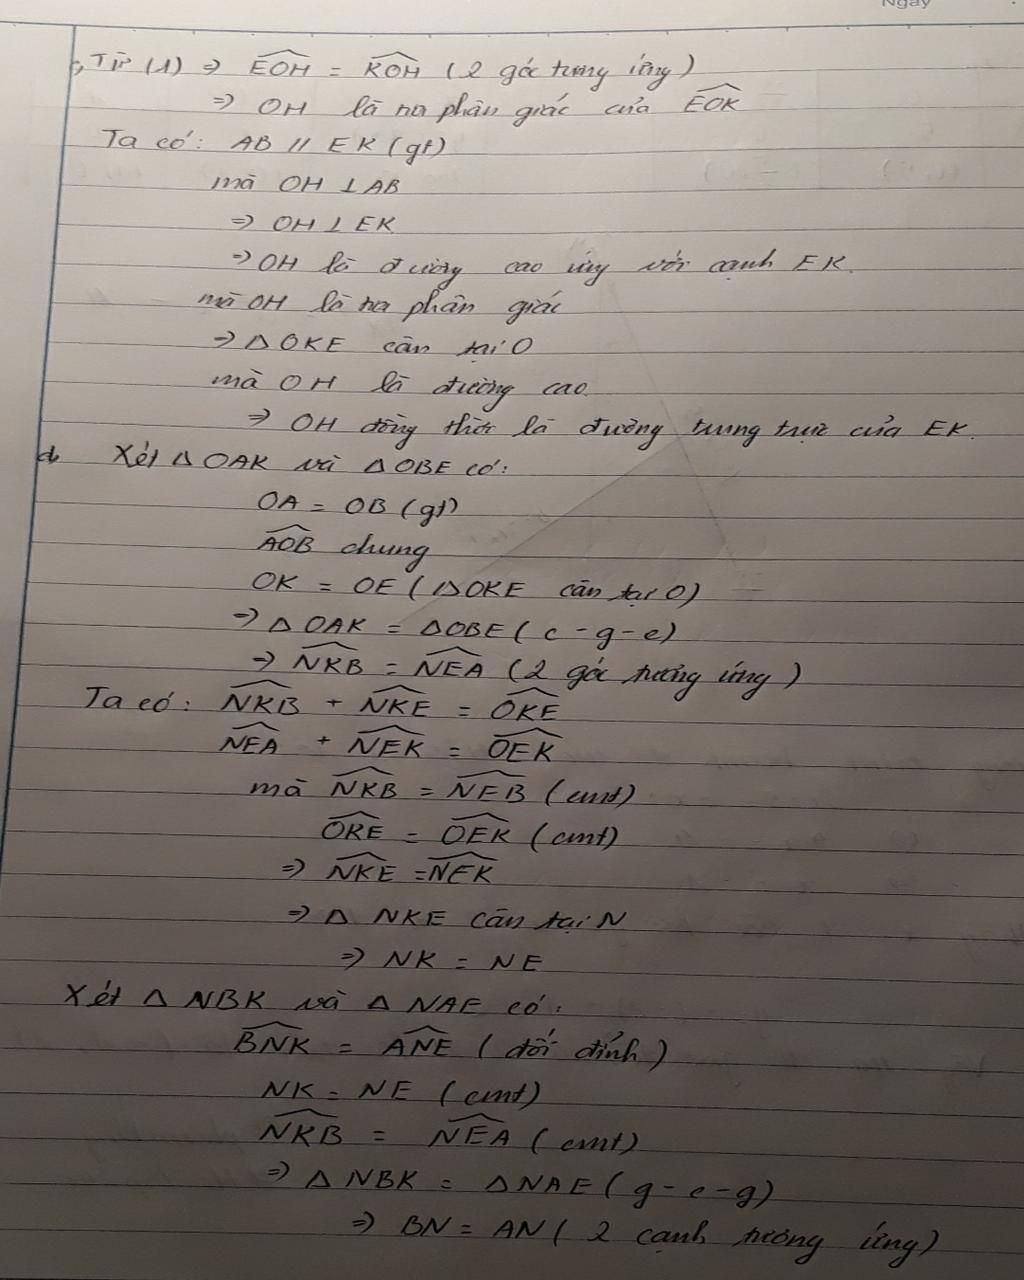 Ngày
c, Từ (1) => EOH = KOH (2 góc tương ứng)
=> OH là tia phân giác của EOK
Ta có: AB // EK (gt)
mà OH ⊥ AB
=> OH ⊥ EK
=> OH là đường cao ứng với cạnh EK.
mà OH là tia phân giác
=> Δ OKE cân tại O
mà OH là đường cao
=> OH đồng thời là đường trung trực của EK.
d, Xét Δ OAK và Δ OBE có:
OA = OB (gt)
AOB chung
OK = OE (ΔOKE cân tại O)
=> Δ OAK = ΔOBE (c-g-c)
=> NKB = NEA (2 góc tương ứng)
Ta có: NKB + NKE = OKE
NEA + NEK = OEK
mà NKB = NEB (cmt)
OKE = OEK (cmt)
=> NKE = NEK
=> Δ NKE cân tại N
=> NK = NE
Xét Δ NBK và Δ NAE có:
BNK = ANE (đối đỉnh)
NK = NE (cmt)
NKB = NEA (cmt)
=> Δ NBK = ΔNAE (g-c-g)
=> BN = AN (2 cạnh tương ứng)